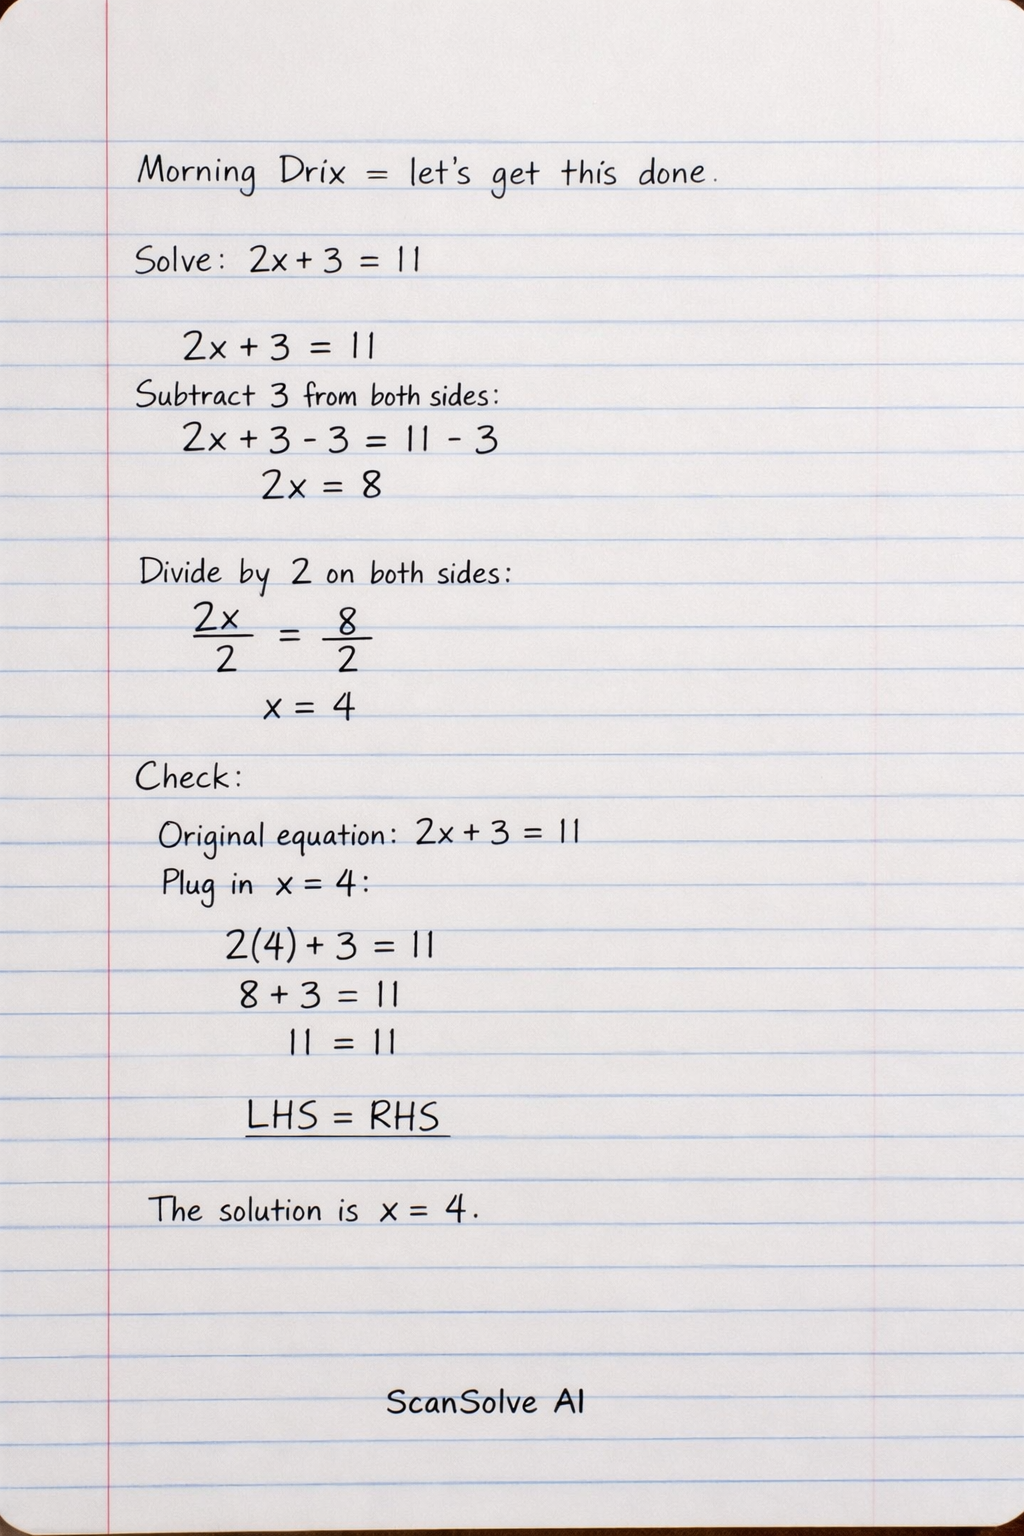 Morning Drix = let's get this done.
Solve: 2x + 3 = 11
2x + 3 = 11
Subtract 3 from both sides:
2x + 3 - 3 = 11 - 3
2x = 8
Divide by 2 on both sides:
2x/2 = 8/2
x = 4
Check:
Original equation: 2x + 3 = 11
Plug in x = 4:
2(4) + 3 = 11
8 + 3 = 11
11 = 11
LHS = RHS
The solution is x = 4.
ScanSolve AI